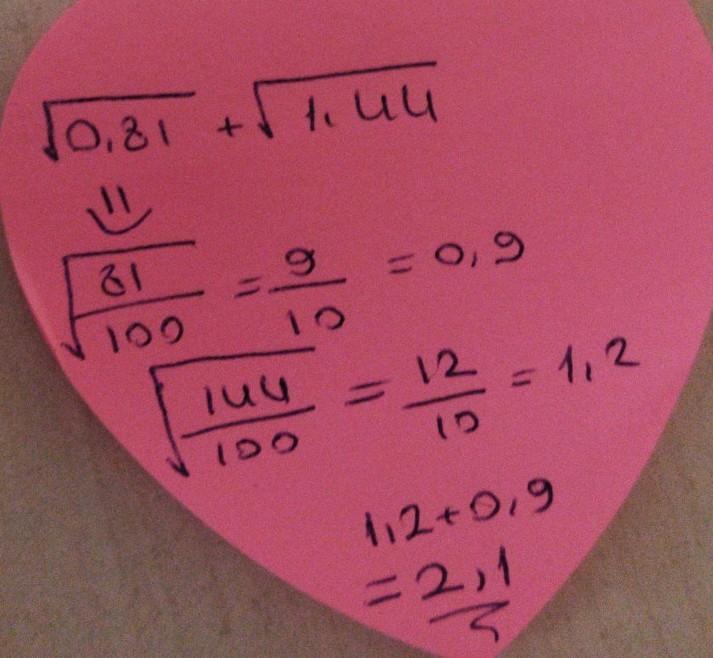 √0,81 + √1,44
=
√81/100 = 9/10 = 0,9
√144/100 = 12/10 = 1,2
1,2+0,9
= 2,1